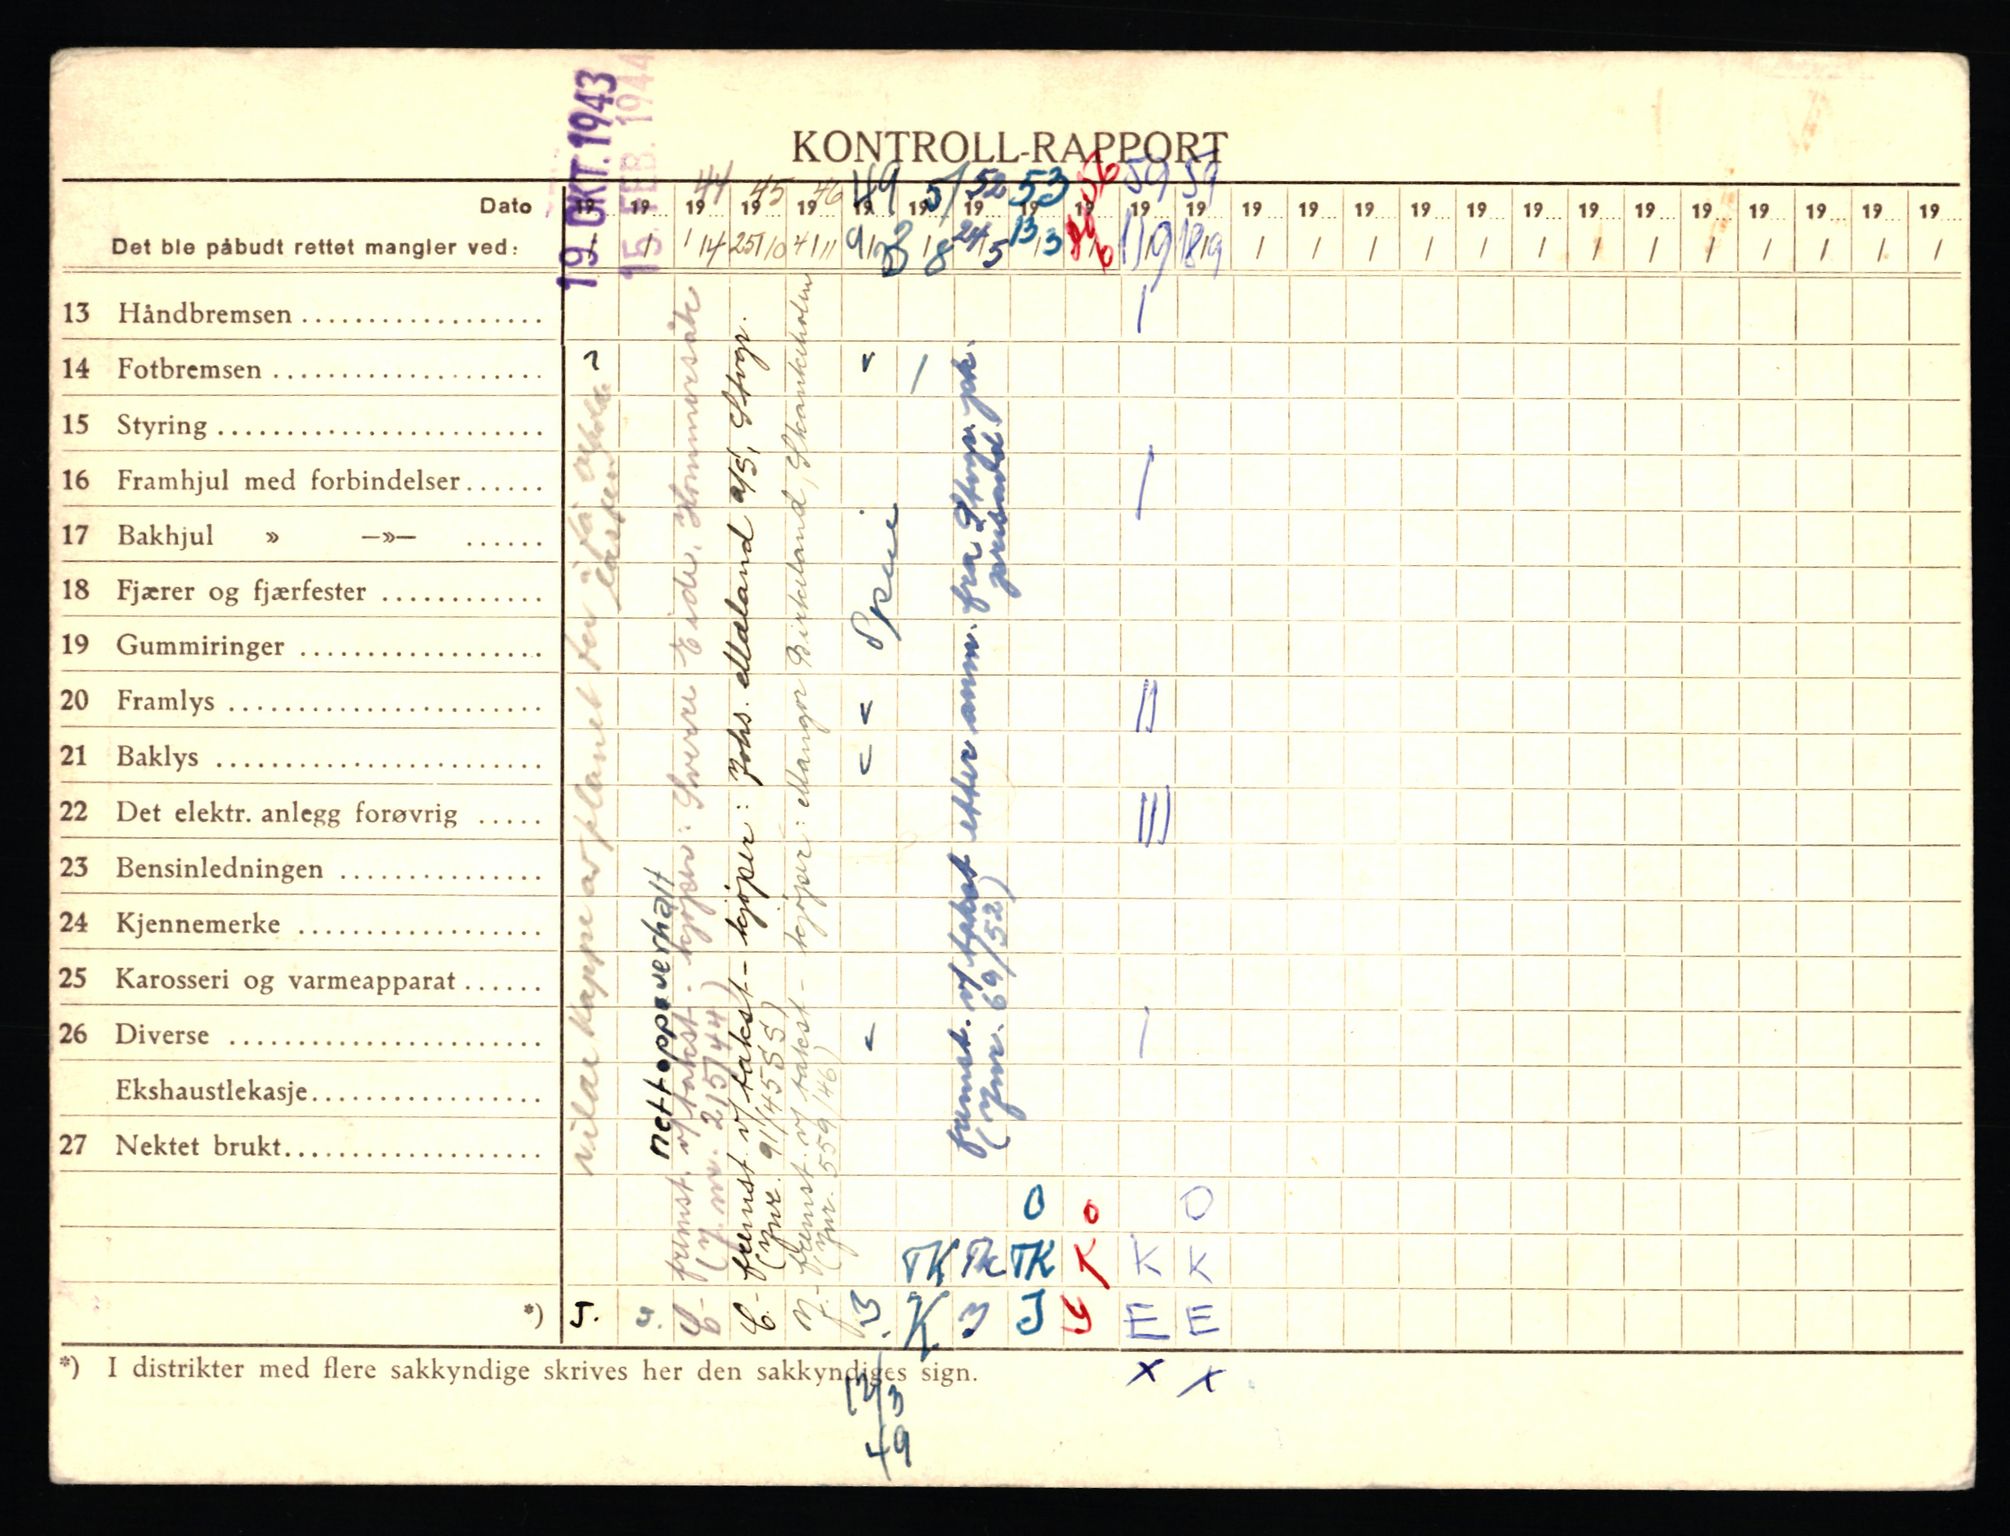 19. OKT. 1943
15. FEB. 1944
KONTROLL-RAPPORT
44 45 46 49 51 52 53 56 59 59
Dato 19 19 19 19 19 19 19 19 19 19 19 19 19 19 19 19 19 19 19 19 19 19 19 19 19
Det ble påbudt rettet mangler ved: / / 1/4 25/10 4/11 9/3 /8 24/5 13/3 11/9 18/9 / / / / / / / / / / / / /
13 Håndbremsen
14 Fotbremsen
15 Styring
16 Framhjul med forbindelser
17 Bakhjul » —»—
18 Fjærer og fjærfester
19 Gummiringer
20 Framlys
21 Baklys
22 Det elektr. anlegg forøvrig
23 Bensinledningen
24 Kjennemerke
25 Karosseri og varmeapparat
26 Diverse
Ekshaustlekasje
27 Nektet brukt
nettopp overhalt
fremst. v/ takst. kjøper: Sverre Eide, Hommersåk
(J.nr. 215/44)
fremst. v/ takst - kjøper: Johs. Mæland a/s, Stvgr.
(Jnr. 91/45 S S)
fremst. v/ takst - kjøper: Mangor Birkeland, Skankeholen
(Jnr. 559/46)
Prøve
fremst. v/ takst etter anm. fra Stvgr. pk.
(Jnr. 69/52) prisavd.
O o O
TK TK TK K K K
*) J. J. E- E.- J. K J J J E E
*) I distrikter med flere sakkyndige skrives her den sakkyndiges sign.
x x
12/3
49